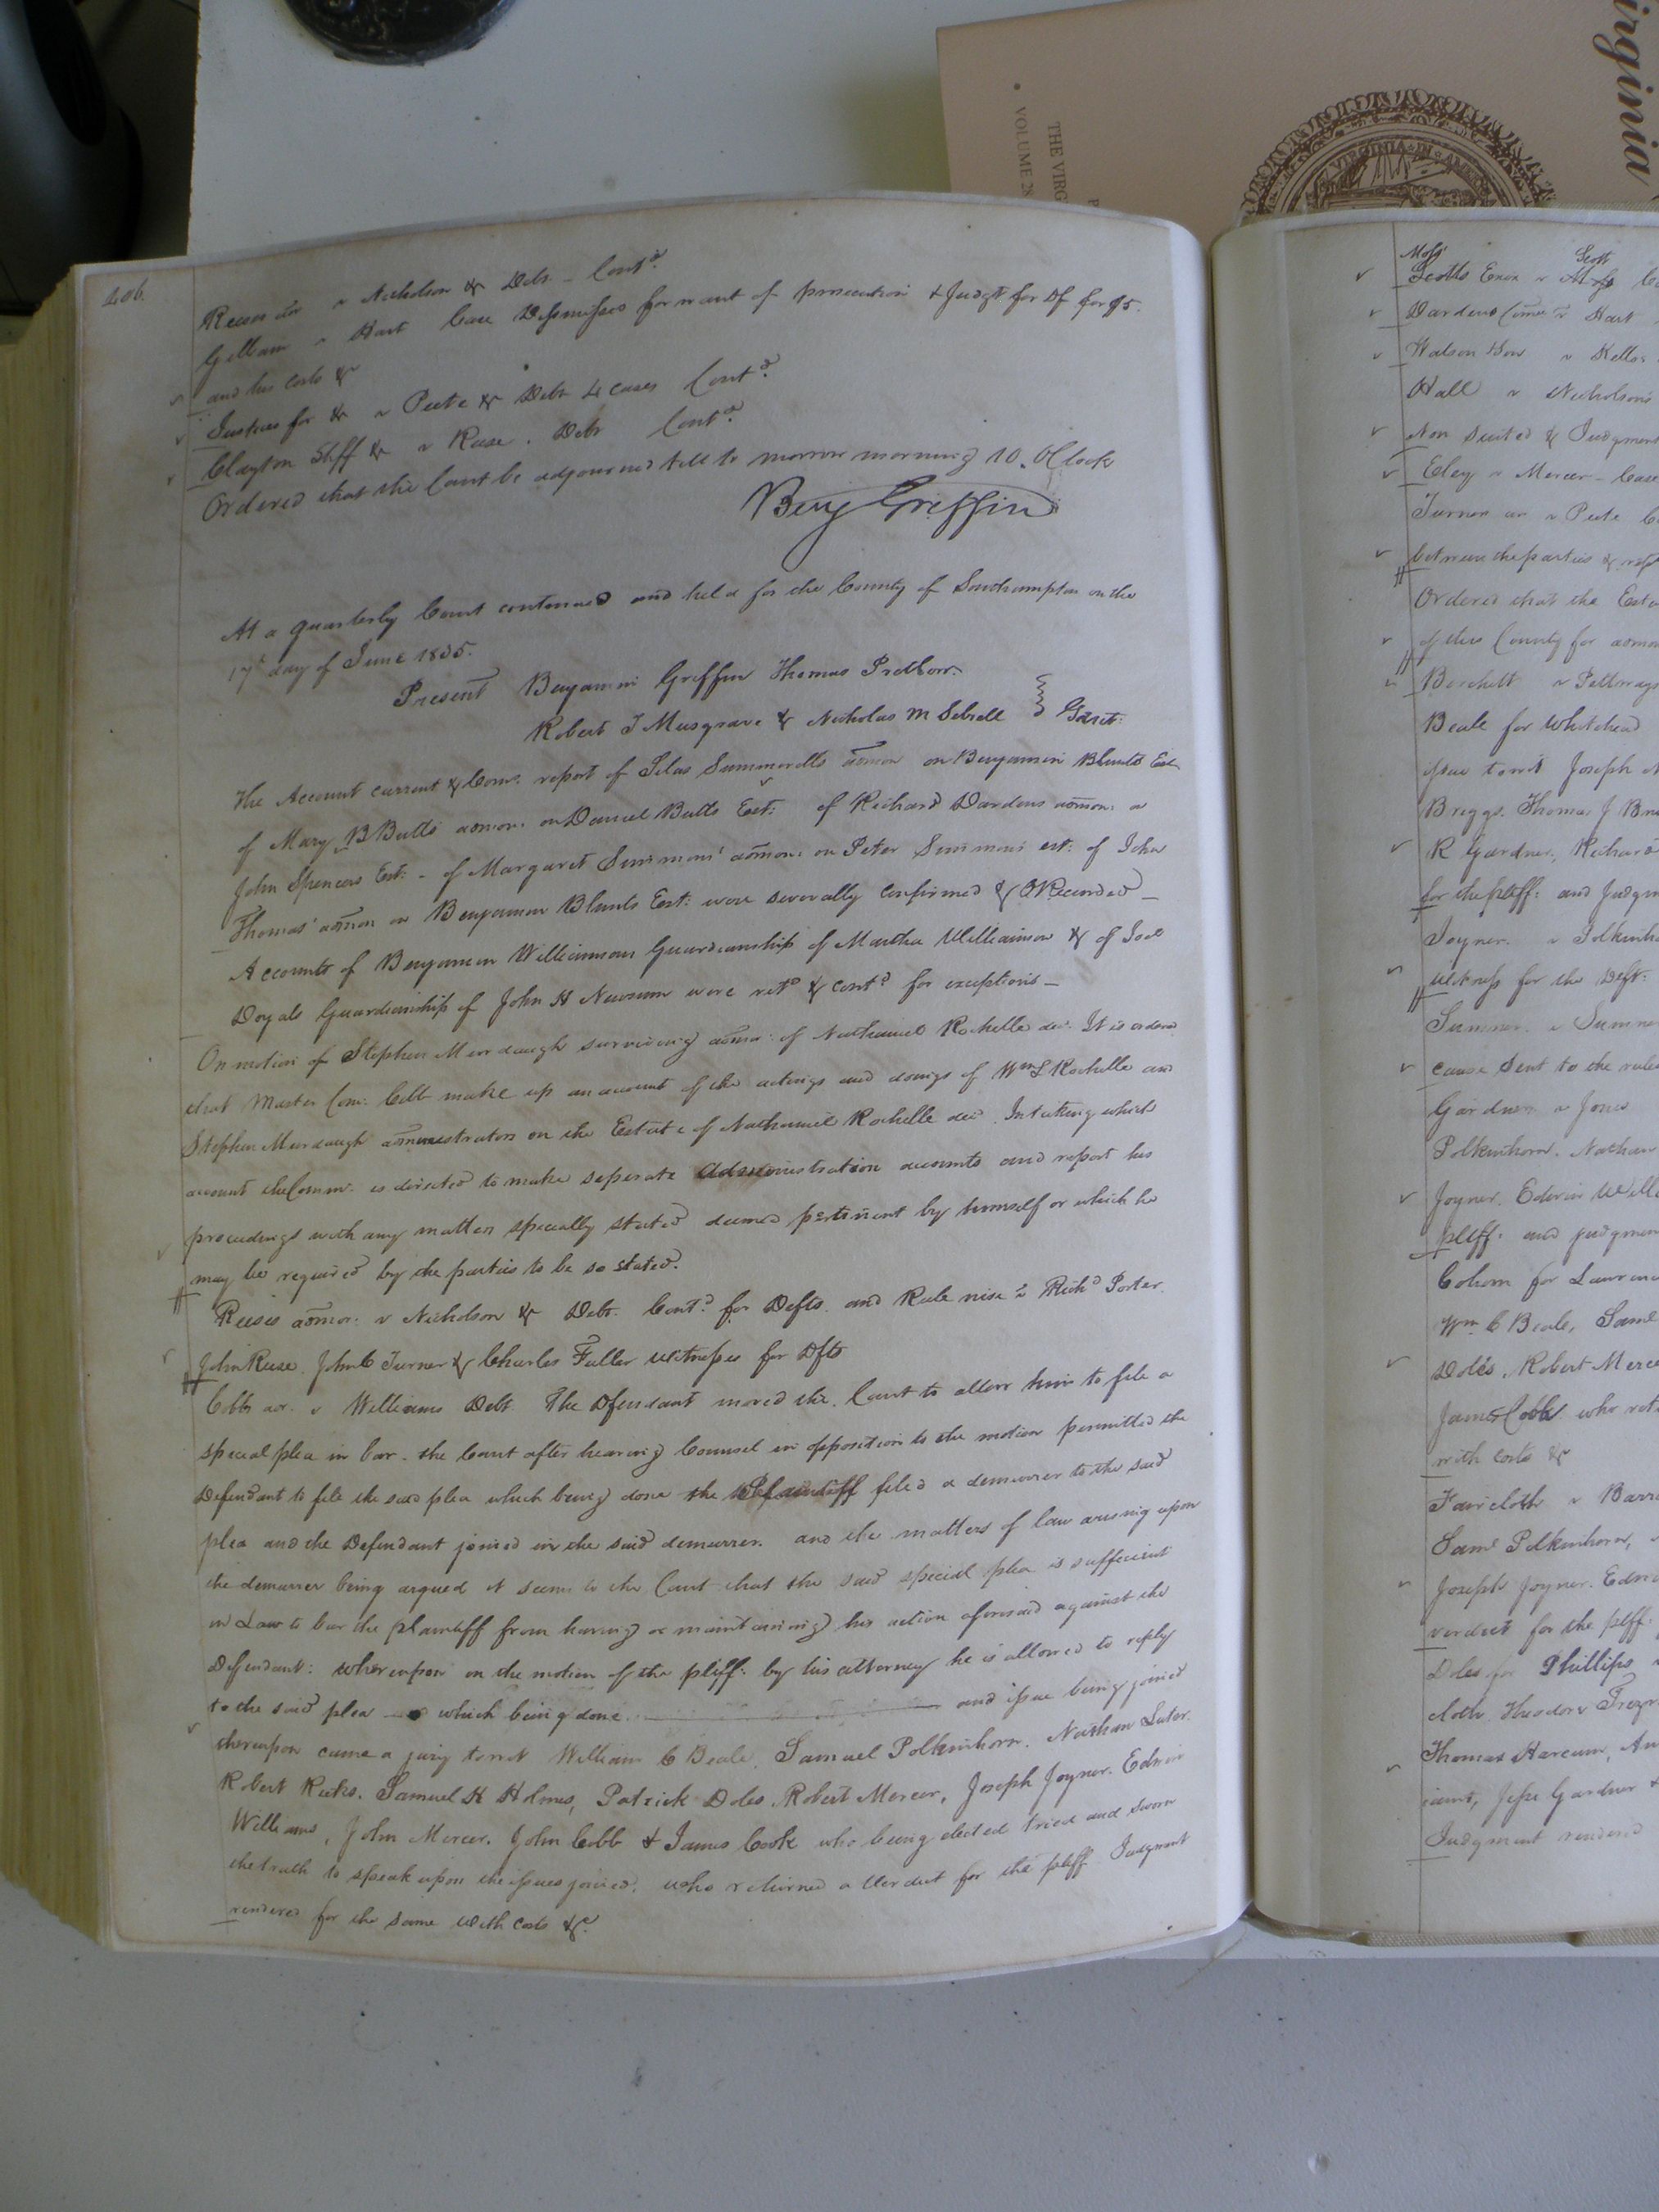 irginia
THE VIRG
VOLUME 28
VIRGINIA IN
206.
Reeses adr v Nicholson &c Debt - Contd.
Gilliam v Hart Case Dismissed for want of prosecution & Judgt for Df for $5.
and his costs &c
Justices for &c v Peete &c Debt 4 cases Contd.
Clayton Shff &c v Reese. Debt Contd.
Ordered that the Court be adjourned till to morrow morning 10. OClock
Benj Griffin
At a quarterly Court continued and held for the County of Southampton on the
17th day of June 1835.
Present Benjamin Griffin Thomas Pretlow.
Robert T Musgrave & Nicholas M Sebrell } Gent:
The Account current & Comrs. report of Silas Summerells admon on Benjamin Blunts Est.
of Mary B Butts admon. on Daniel Butts Est: of Richard Dardens admon. on
John Spencers Est: - of Margaret Simmons' admon. on Peter Simmons est: of John
Thomas' admon on Benjamin Blunts Est: were severally confirmed & ORecorded -
Accounts of Benjamin Williamsons Guardianship of Martha Williamson & of Joel
Doyals Guardianship of John H Newsum were retd & contd for exceptions -
On motion of Stephen Murdaugh surviving admor: of Nathaniel Rochelle dec. It is ordered
that Master Com: Cobb make up an account of the actings and doings of Wm L Rochelle and
Stephen Murdaugh administrators on the Estate of Nathaniel Rochelle dec. In taking which
account the Commr. is directed to make seperate administration accounts and report his
proceedings with any matters specially stated deemed pertinent by himself or which he
may be required by the parties to be so stated.
Reeses admor. v Nicholson &c Debt. Contd. for Defts. and Rule nisi v Richd Porter.
John Reese, John C Turner & Charles Fuller witnesses for Dfts
Cobbs adr. v Williams Debt. The Dfendant moved the Court to allow him to file a
special plea in bar - the Court after hearing Counsel in opposition to the motion permitted the
Defendant to file the said plea which being done the Plaintiff filed a demurrer to the said
plea and the Defendant joined in the said demurrer. and the matters of law arising upon
the demurrer being argued it seems to the Court that the said special plea is sufficient
in Law to bar the plaintiff from having or maintaining his action aforesaid against the
Defendant: whereupon on the motion of the pltff: by his attorney he is allowed to reply
to the said plea — which being done. — and issue being joined
thereupon came a jury towit William C Beale, Samuel Polkinhorn. Nathan Luter.
Robert Ricks. Samuel K Holmes, Patrick Doles, Robert Mercer, Joseph Joyner. Edwin
Williams, John Mercer. John Cobb & James Cook who being elected tried and sworn
the truth to speak upon the issues joined. who returned a Verdict for the pltff. Judgment
rendered for the same with costs &c.
Moss Scott
Scotts Exor v
Dardens Comee v Hart
Watson &c v Kello
Hall v Nicholsons
Non Suited & Judgment
Eley v Mercer - Case
Turner v Peete
between the parties &
Ordered that the Esta
of this County for admon
Birchett v Pettways
Beale for Whitehead
issue towit Joseph
Briggs. Thomas J
R Gardner, Richard
for the pltff: and Judgm
Joyner. v Polkinho
witness for the Deft.
Sumner. v Sumner
cause Sent to the rules
Gardner v Jones
Polkinhorn. Nathan
Joyner. Edwin Willi
pltff. and judgmen
Cohoon for Lawrence
Wm C Beale, Saml
Doles, Robert Merce
James Cobb. who ret
with costs &c
Faircloth v Barr
Saml Polkinhorn,
Joseph Joyner. Edwi
verdict for the pltff.
Doles for Phillips
cloth Theodore
Thomas Harcum,
Jesse Gardner &
Judgment rendered